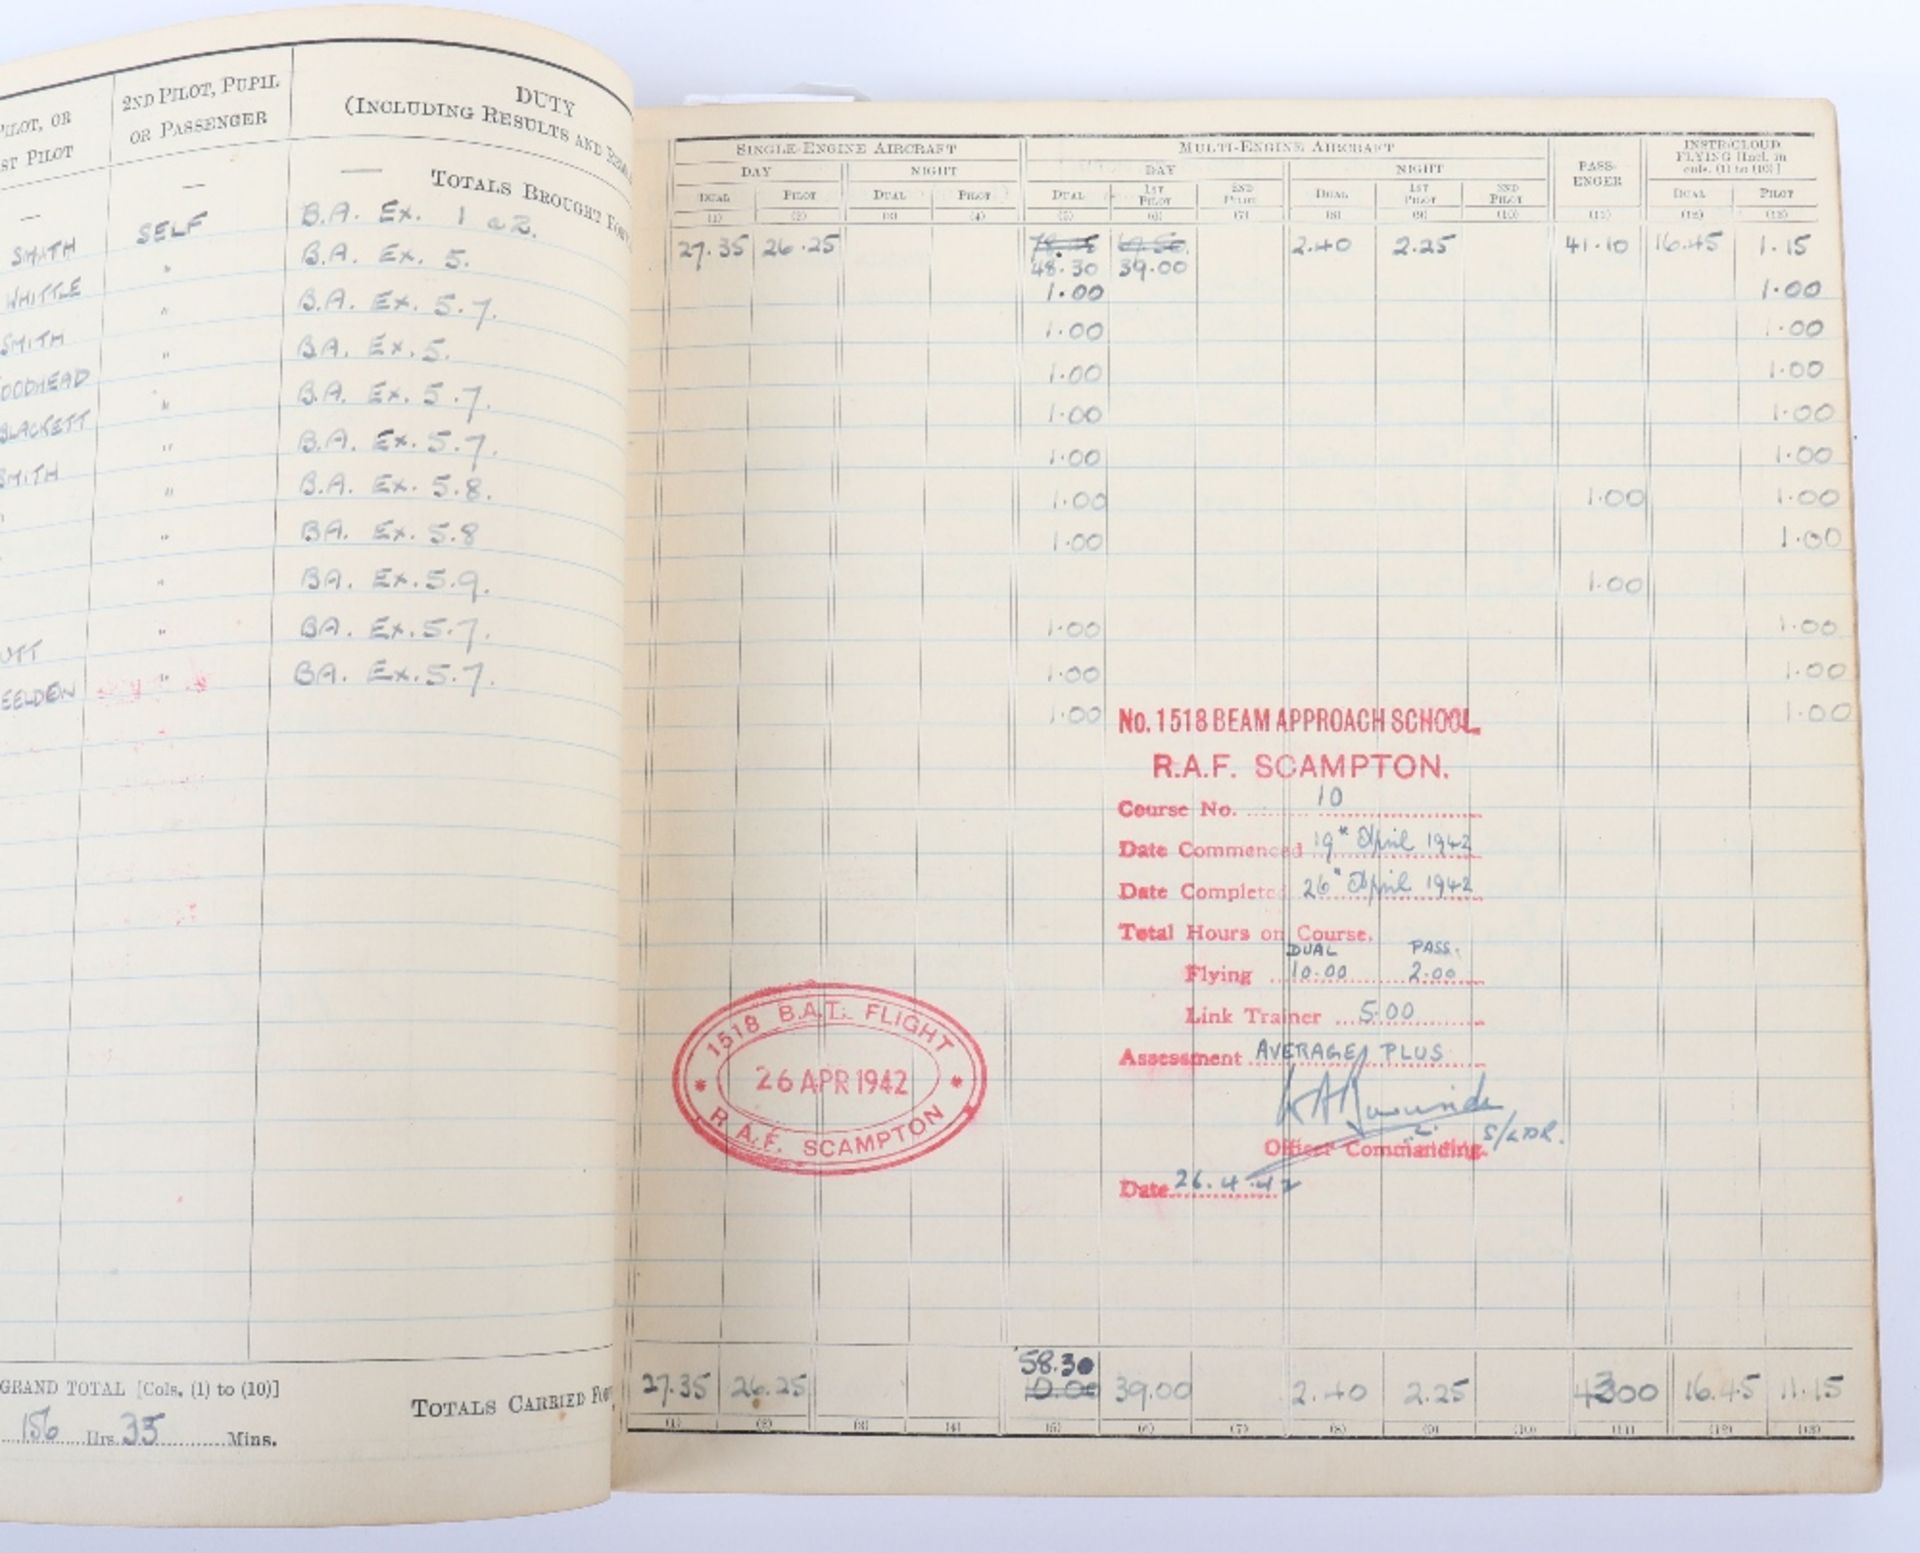 PILOT, OR
ST PILOT
2ND PILOT, PUPIL
OR PASSENGER
DUTY
(INCLUDING RESULTS AND
— — —
TOTALS BROUGHT
SMITH SELF B.A. Ex. 1 & 2.
WHITTLE " B.A. Ex. 5.
SMITH " B.A. Ex. 5.7.
OODHEAD " B.A. Ex. 5.
BLACKETT " B.A. Ex. 5.7.
SMITH " B.A. Ex. 5.7.
" " B.A. Ex. 5.8.
" B.A. Ex. 5.8
" B.A. Ex. 5.9.
UTT " B.A. Ex. 5.7.
EELDEN " B.A. Ex. 5.7.
GRAND TOTAL [Cols. (1) to (10)]
156 Hrs. 35 Mins.
TOTALS CARRIED
SINGLE-ENGINE AIRCRAFT MULTI-ENGINE AIRCRAFT PASS-ENGER INSTR/CLOUD FLYING [Incl. in cols. (1) to (10)]
DAY NIGHT DAY NIGHT
DUAL PILOT DUAL PILOT DUAL 1ST PILOT 2ND PILOT DUAL 1ST PILOT 2ND PILOT DUAL PILOT
(1) (2) (3) (4) (5) (6) (7) (8) (9) (10) (11) (12) (13)
27.35 26.25 2.40 2.25 41.10 16.45 1.15
48.30 39.00
1.00 1.00
1.00 1.00
1.00 1.00
1.00 1.00
1.00 1.00
1.00 1.00 1.00
1.00 1.00
1.00
1.00 1.00
1.00 1.00
1.00 1.00
No. 1518 BEAM APPROACH SCHOOL
R.A.F. SCAMPTON.
Course No. 10
Date Commenced 19th April 1942
Date Completed 26th April 1942
Total Hours on Course.
DUAL PASS.
Flying 10.00 2.00
Link Trainer 5.00
Assessment AVERAGE PLUS
S/LDR.
Officer Commanding.
Date 26.4.42
1518 B.A.T. FLIGHT
26 APR 1942
R.A.F. SCAMPTON
58.30
27.35 26.25 10.00 39.00 2.40 2.25 4300 16.45 11.15
(1) (2) (3) (4) (5) (6) (7) (8) (9) (10) (11) (12) (13)